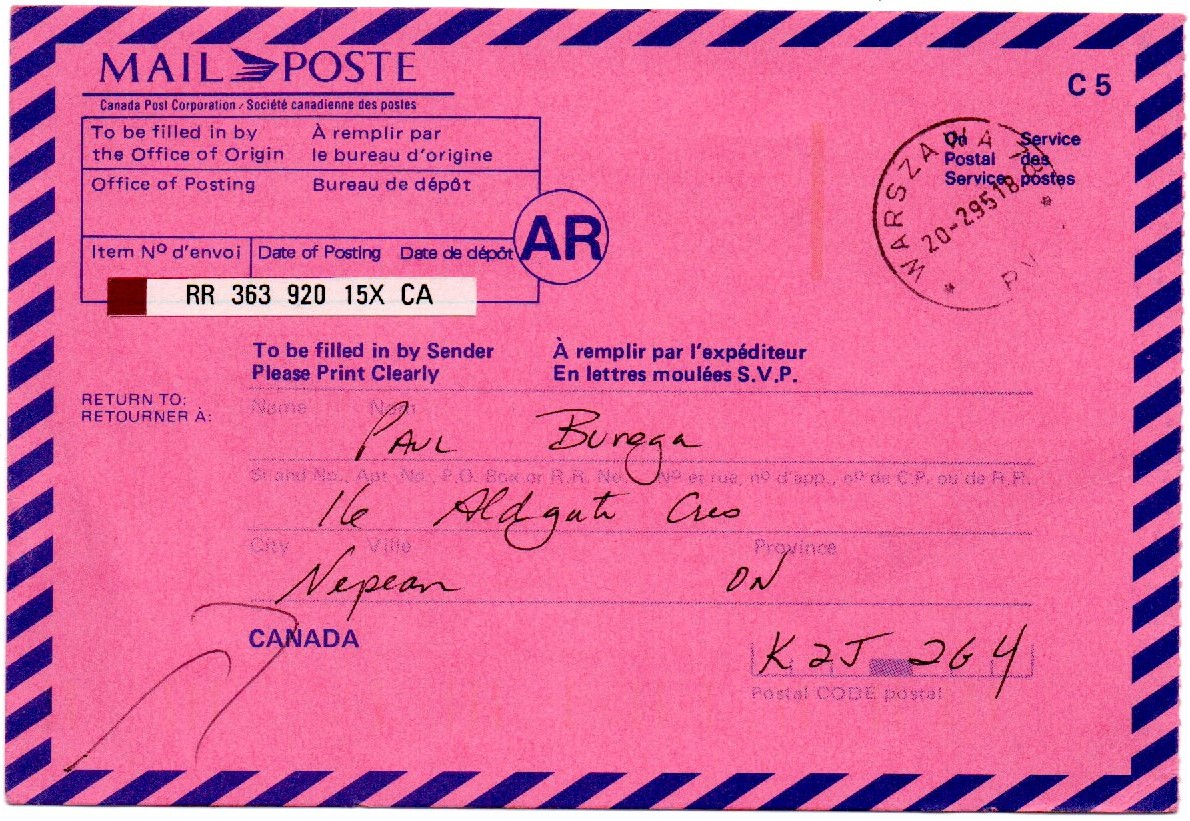 MAIL POSTE
Canada Post Corporation / Société canadienne des postes
C 5
To be filled in by À remplir par
the Office of Origin le bureau d'origine
Office of Posting Bureau de dépôt
On Service
Postal des
Service postes
WARSZAWA
20-29518
AR
Item Nº d'envoi Date of Posting Date de dépôt
RR 363 920 15X CA
To be filled in by Sender À remplir par l'expéditeur
Please Print Clearly En lettres moulées S.V.P.
RETURN TO:
RETOURNER À:
Name Nom
PAUL Burega
St and No., Apt. No., P.O. Box or R.R. No. Nº et rue, nº d'app., nº de C.P. ou de R.R.
16 Aldgate Cres
City Ville Province
Nepean ON
CANADA
K2J 2G4
Postal CODE postal